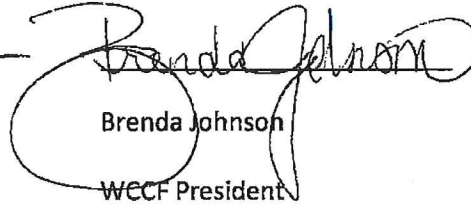 Brenda Johnson
Brenda Johnson
WCCF President